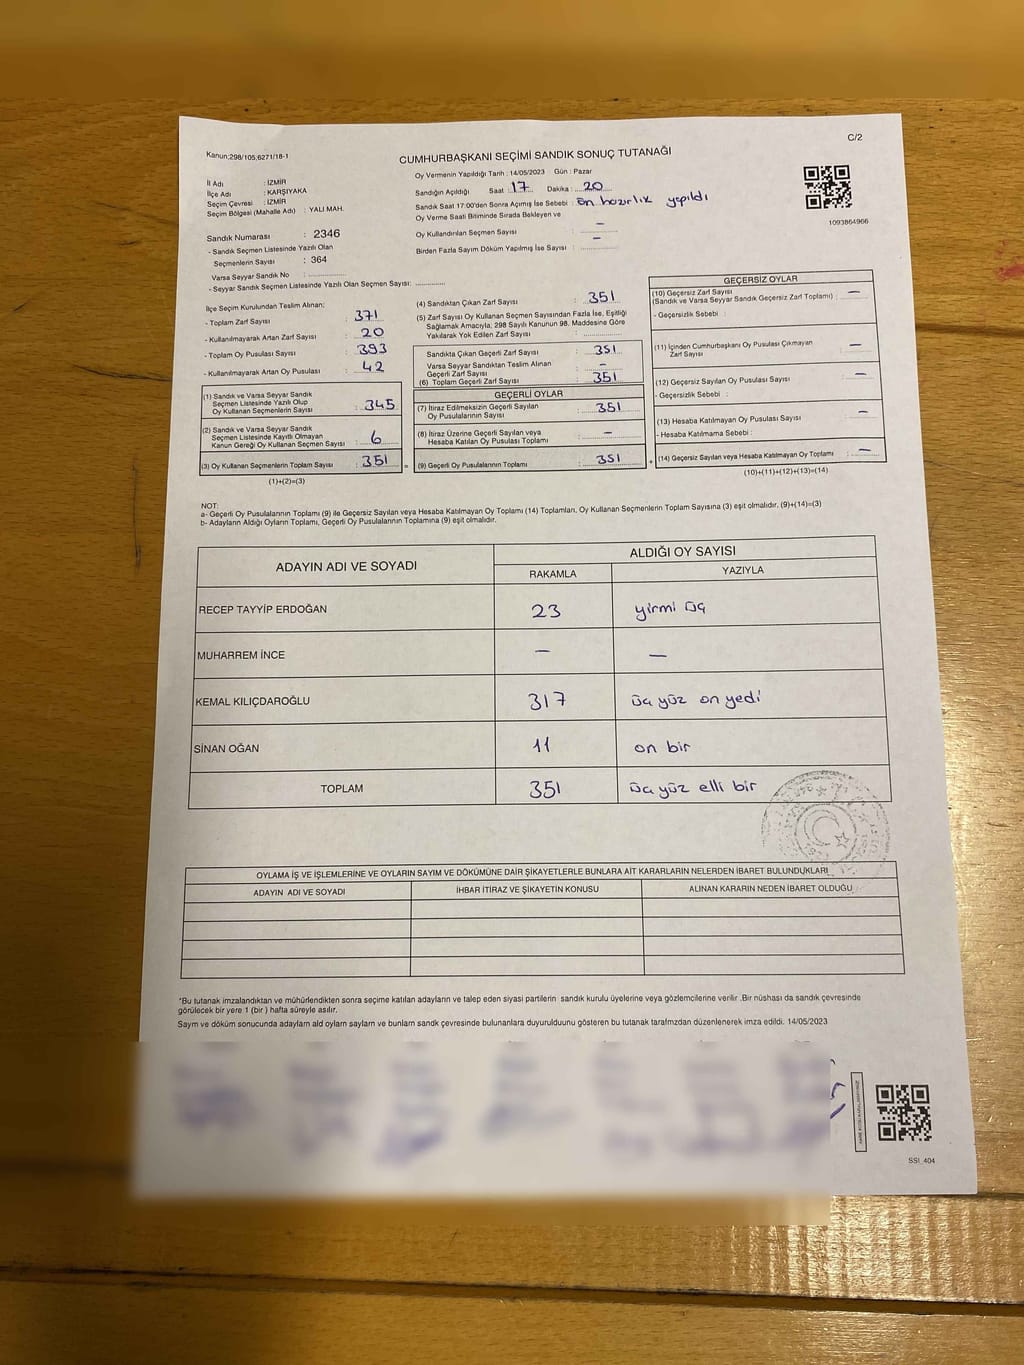 Kanun;298/105,6271/18-1
C/2
CUMHURBAŞKANI SEÇİMİ SANDIK SONUÇ TUTANAĞI
İl Adı : İZMİR
İlçe Adı : KARŞIYAKA
Seçim Çevresi : İZMİR
Seçim Bölgesi (Mahalle Adı) : YALI MAH.
Sandık Numarası : 2346
- Sandık Seçmen Listesinde Yazılı Olan
Seçmenlerin Sayısı : 364
Varsa Seyyar Sandık No :
- Seyyar Sandık Seçmen Listesinde Yazılı Olan Seçmen Sayısı:
Oy Vermenin Yapıldığı Tarih : 14/05/2023 Gün : Pazar
Sandığın Açıldığı Saat : 17 Dakika : 20
Sandık Saat 17:00'den Sonra Açımış İse Sebebi : ön hazırlık yapıldı
Oy Verme Saati Bitiminde Sırada Bekleyen ve
Oy Kullandırılan Seçmen Sayısı : –
Birden Fazla Sayım Döküm Yapılmış İse Sayısı : –
1093864966
İlçe Seçim Kurulundan Teslim Alınan;
- Toplam Zarf Sayısı : 371
- Kullanılmayarak Artan Zarf Sayısı : 20
- Toplam Oy Pusulası Sayısı : 393
- Kullanılmayarak Artan Oy Pusulası : 42
(1) Sandık ve Varsa Seyyar Sandık
Seçmen Listesinde Yazılı Olup
Oy Kullanan Seçmenlerin Sayısı : 345
(2) Sandık ve Varsa Seyyar Sandık
Seçmen Listesinde Kayıtlı Olmayan
Kanun Gereği Oy Kullanan Seçmen Sayısı : 6
(3) Oy Kullanan Seçmenlerin Toplam Sayısı : 351
(1)+(2)=(3)
(4) Sandıktan Çıkan Zarf Sayısı : 351
(5) Zarf Sayısı Oy Kullanan Seçmen Sayısından Fazla İse, Eşitliği
Sağlamak Amacıyla, 298 Sayılı Kanunun 98. Maddesine Göre
Yakılarak Yok Edilen Zarf Sayısı :
Sandıkta Çıkan Geçerli Zarf Sayısı : 351
Varsa Seyyar Sandıktan Teslim Alınan
Geçerli Zarf Sayısı : –
(6) Toplam Geçerli Zarf Sayısı : 351
GEÇERLİ OYLAR
(7) İtiraz Edilmeksizin Geçerli Sayılan
Oy Pusulalarının Sayısı : 351
(8) İtiraz Üzerine Geçerli Sayılan veya
Hesaba Katılan Oy Pusulası Toplamı : –
= (9) Geçerli Oy Pusulalarının Toplamı : 351
GEÇERSİZ OYLAR
(10) Geçersiz Zarf Sayısı
(Sandık ve Varsa Seyyar Sandık Geçersiz Zarf Toplamı) : –
- Geçersizlik Sebebi :
(11) İçinden Cumhurbaşkanı Oy Pusulası Çıkmayan
Zarf Sayısı : –
(12) Geçersiz Sayılan Oy Pusulası Sayısı : –
- Geçersizlik Sebebi :
(13) Hesaba Katılmayan Oy Pusulası Sayısı : –
- Hesaba Katılmama Sebebi :
+ (14) Geçersiz Sayılan veya Hesaba Katılmayan Oy Toplamı : –
(10)+(11)+(12)+(13)=(14)
NOT:
a- Geçerli Oy Pusulalarının Toplamı (9) ile Geçersiz Sayılan veya Hesaba Katılmayan Oy Toplamı (14) Toplamları, Oy Kullanan Seçmenlerin Toplam Sayısına (3) eşit olmalıdır. (9)+(14)=(3)
b- Adayların Aldığı Oyların Toplamı, Geçerli Oy Pusulalarının Toplamına (9) eşit olmalıdır.
ADAYIN ADI VE SOYADI
ALDIĞI OY SAYISI
RAKAMLA YAZIYLA
RECEP TAYYİP ERDOĞAN 23 yirmi üç
MUHARREM İNCE – –
KEMAL KILIÇDAROĞLU 317 üç yüz on yedi
SİNAN OĞAN 11 on bir
TOPLAM 351 üç yüz elli bir
OYLAMA İŞ VE İŞLEMLERİNE VE OYLARIN SAYIM VE DÖKÜMÜNE DAİR ŞİKAYETLERLE BUNLARA AİT KARARLARIN NELERDEN İBARET BULUNDUKLARI
ADAYIN ADI VE SOYADI İHBAR İTİRAZ VE ŞİKAYETİN KONUSU ALINAN KARARIN NEDEN İBARET OLDUĞU
*Bu tutanak imzalandıktan ve mühürlendikten sonra seçime katılan adayların ve talep eden siyasi partilerin sandık kurulu üyelerine veya gözlemcilerine verilir .Bir nüshası da sandık çevresinde
görülecek bir yere 1 (bir ) hafta süreyle asılır.
Saym ve döküm sonucunda adaylarn ald oylarn saylarn ve bunlarn sandk çevresinde bulunanlara duyurulduunu gösteren bu tutanak tarafmzdan düzenlenerek imza edildi. 14/05/2023
SSI_404